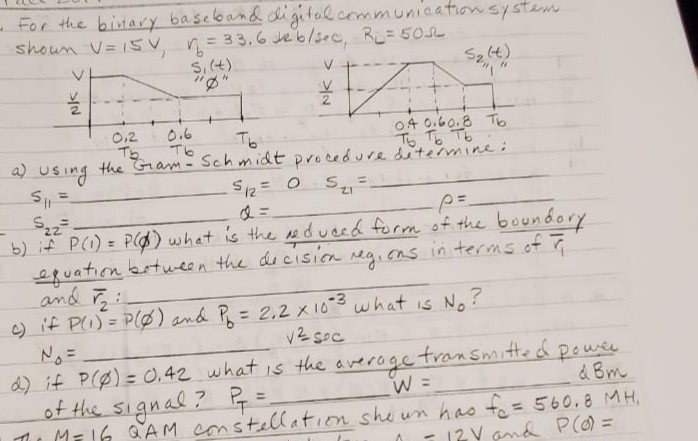 . For the binary baseband digital communication system
shown V = 15 V, r_b = 33.6 kb/sec, R_L = 50Ω
S_1(t)
"Ø"
V
V/2
0,2 Tb 0,6 Tb Tb
S_2(t)
"1"
V
V/2
0.4 Tb 0.6 Tb 0.8 Tb Tb
a) using the Gram-Schmidt procedure determine:
S_11 = S_12 = 0 S_21 =
S_22 = ρ =
b) if P(1) = P(Ø) what is the reduced form of the boundary
equation between the decision regions in terms of r̄_1
and r̄_2 :
c) if P(1) = P(Ø) and P_b = 2.2 x 10^-3 what is N_o?
N_o = V² sec
d) if P(Ø) = 0.42 what is the average transmitted power
of the signal? P_T = W = dBm
M = 16 QAM constellation shown has f_c = 560.8 MH,
= 12V and P(Ø) =